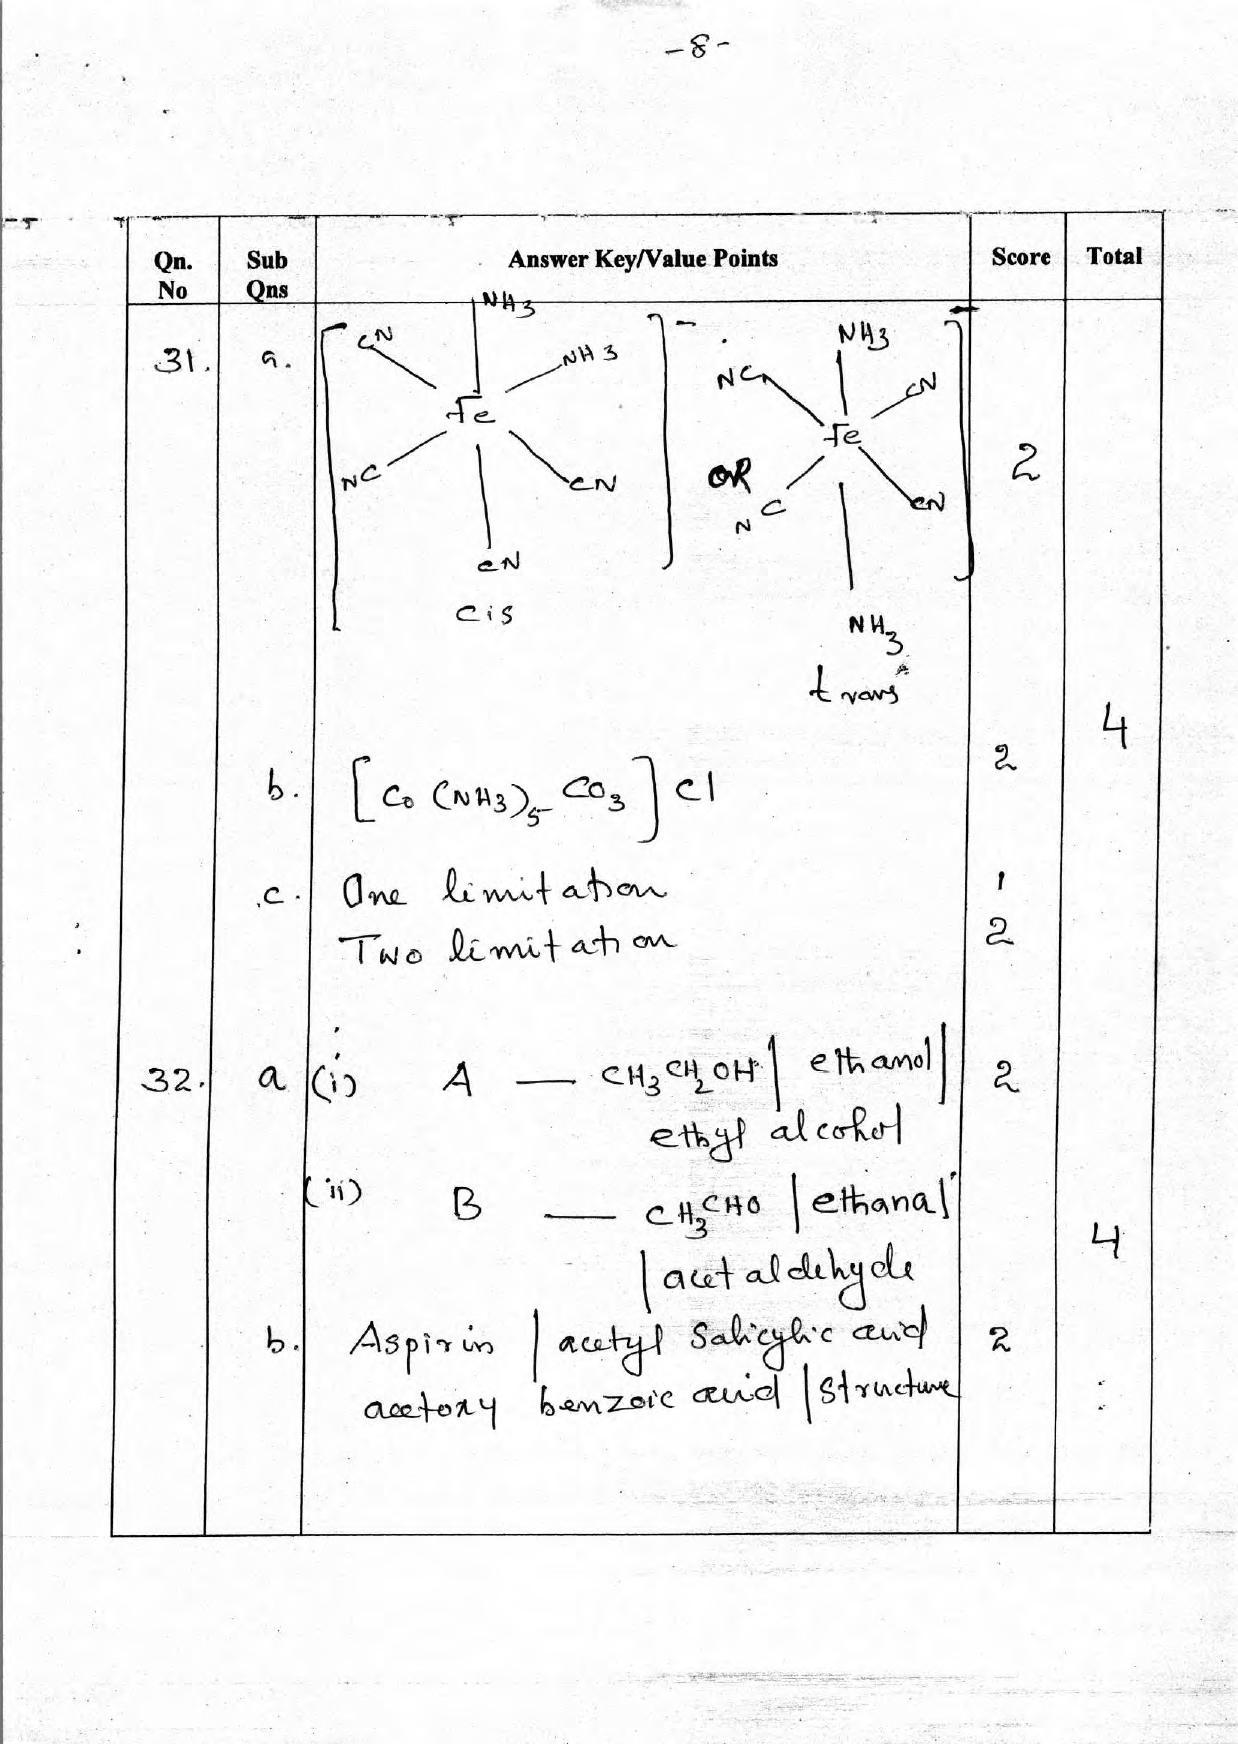 -8-
Qn. No Sub Qns Answer Key/Value Points Score Total
31. a. [ CN NH3 NH3 Fe NC CN CN ]-
cis
OR
NH3 NC CN Fe NC CN NH3 ]-
trans
2
b. [Co (NH3)5 CO3] Cl 2 4
c. One limitation 1
Two limitation 2
32. a (i) A — CH3CH2OH | ethanol | 2
ethyl alcohol
(ii) B — CH3CHO | ethanal
| acetaldehyde 4
b. Aspirin | acetyl Salicylic acid 2
acetoxy benzoic acid | structure